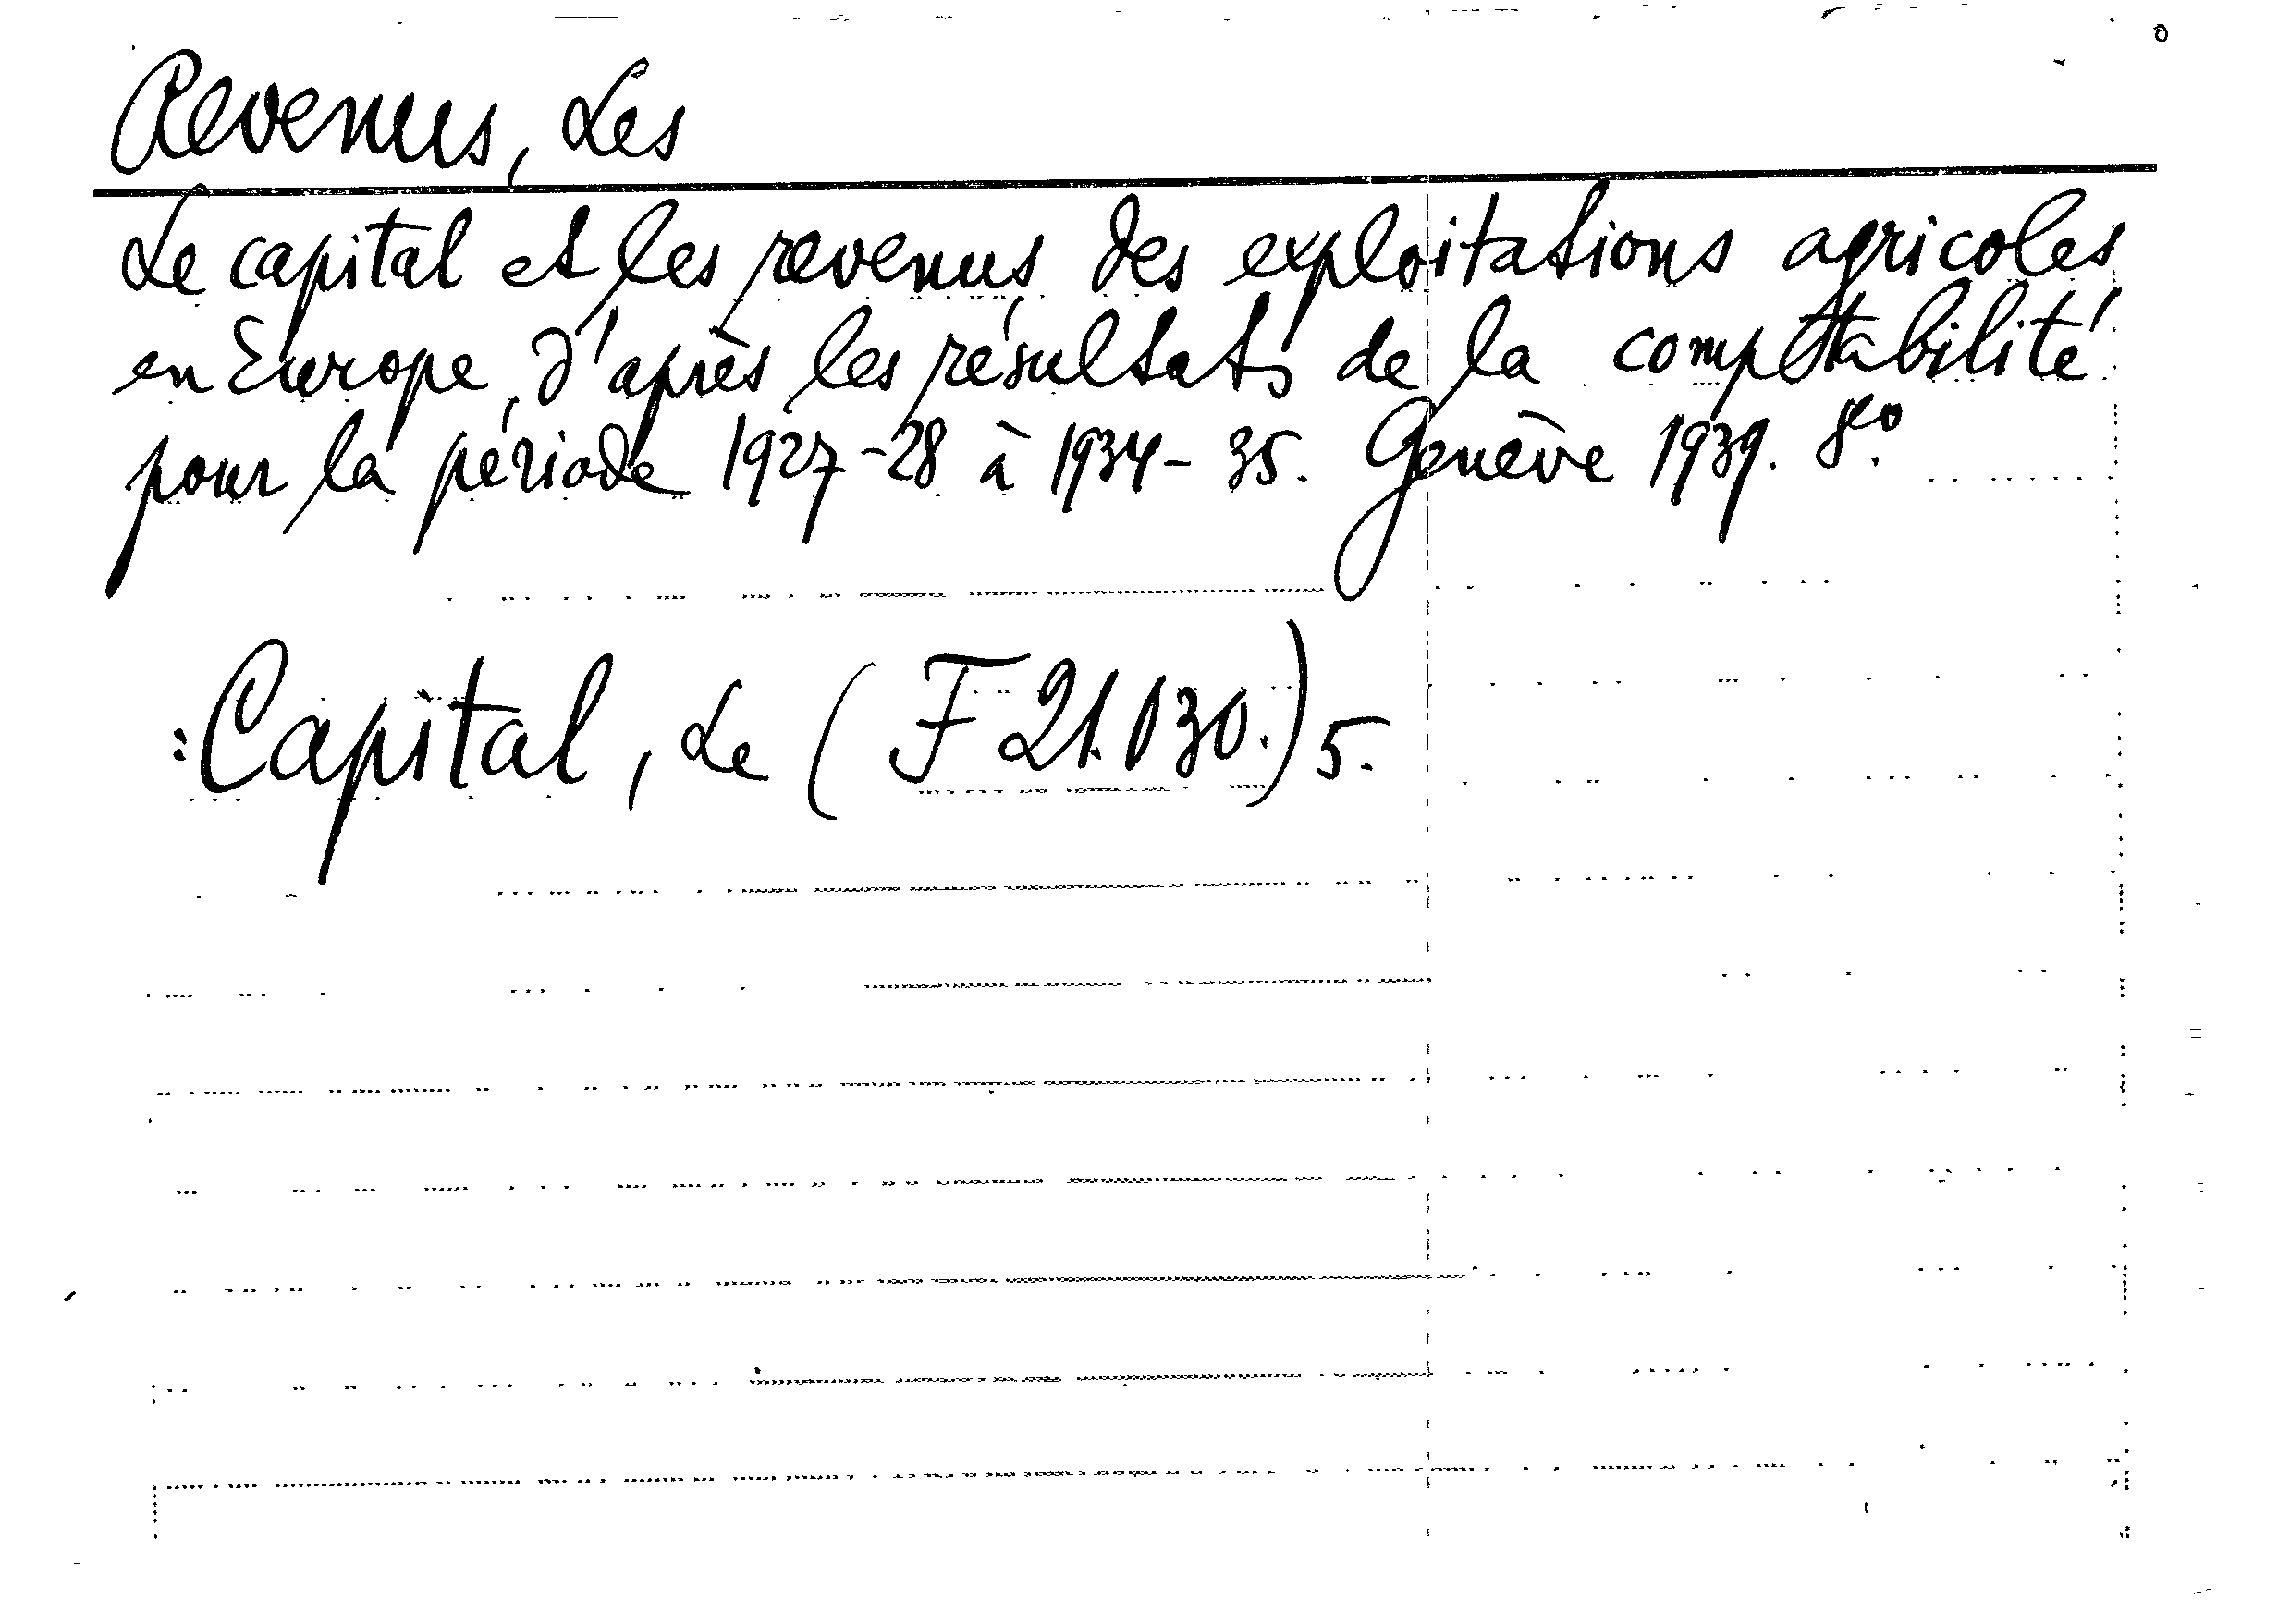 Revenus, Les
Le capital et les revenus des exploitations agricoles
en Europe, d'après les résultats de la comptabilité
pour la période 1927-28 à 1934-35. Genève 1939. 8vo.
: Capital, Le (F 21.030.) 5.